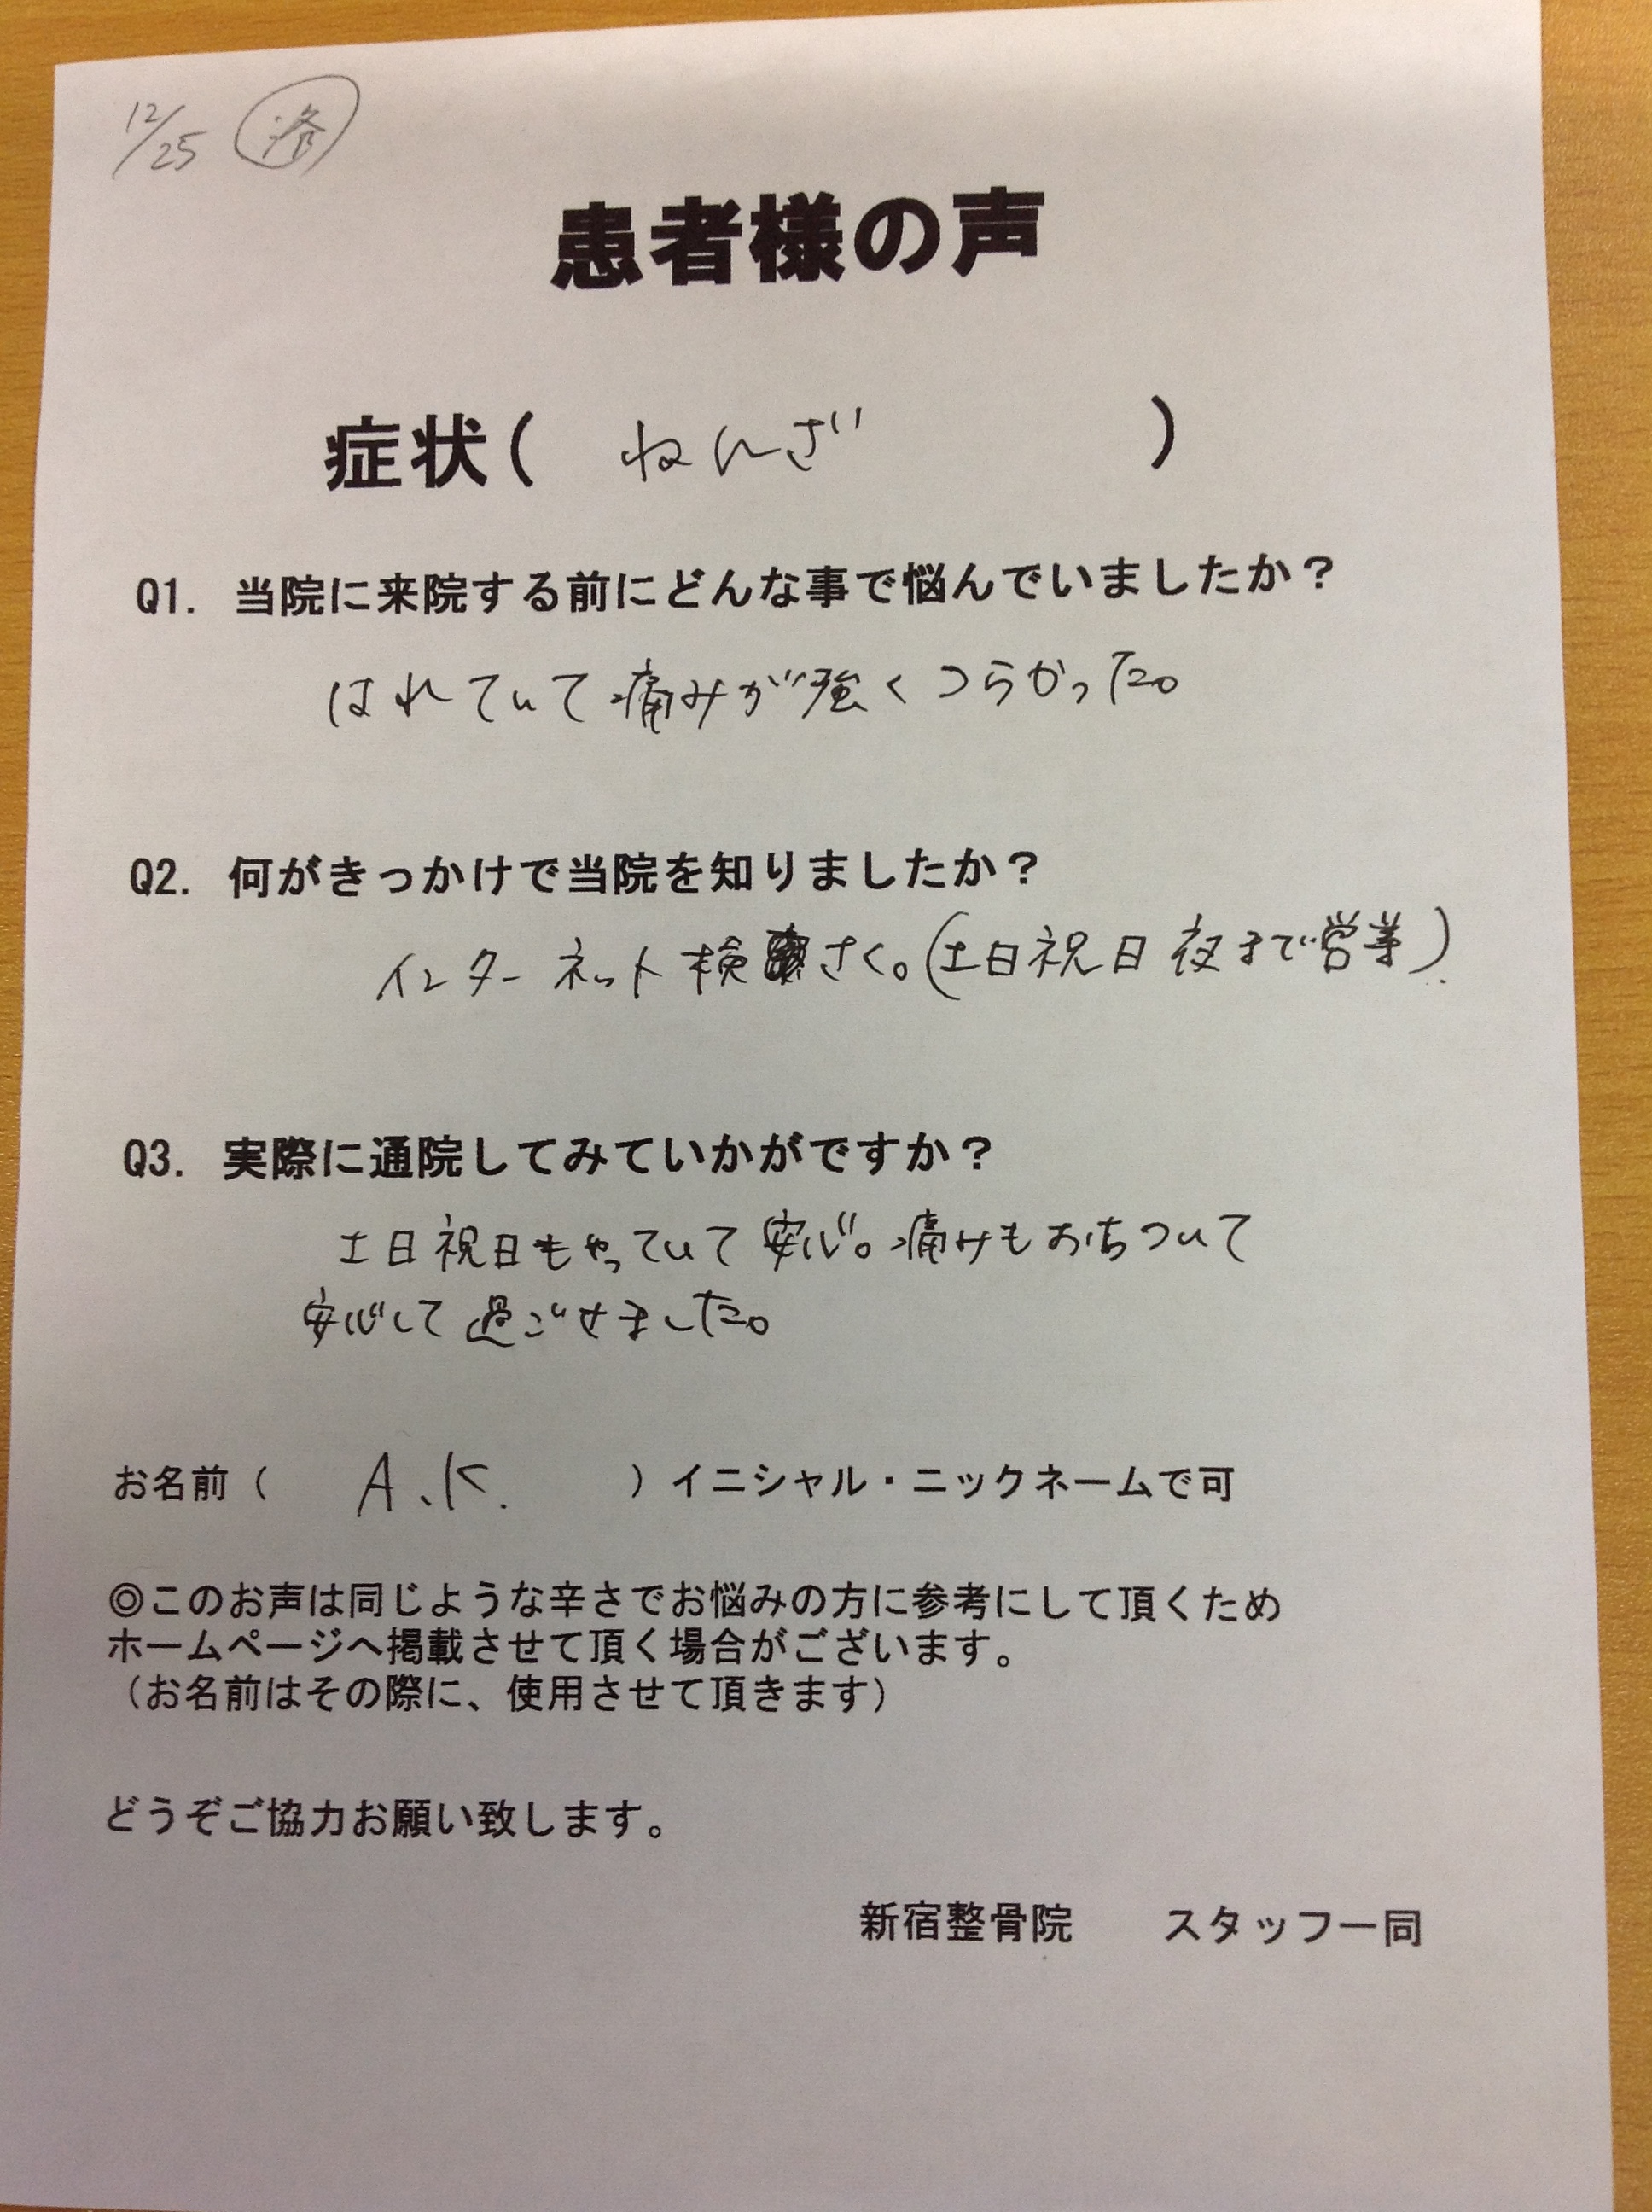 12/25
患者様の声
症状( ねんざ )
Q1. 当院に来院する前にどんな事で悩んでいましたか？
はれていて痛みが強くつらかった。
Q2. 何がきっかけで当院を知りましたか？
インターネット検さく。(土日祝日夜まで営業)
Q3. 実際に通院してみていかがですか？
土日祝日もやっていて安心。痛みもおちついて
安心して過ごせました。
お名前（ A.K. ）イニシャル・ニックネームで可
◎このお声は同じような辛さでお悩みの方に参考にして頂くため
ホームページへ掲載させて頂く場合がございます。
（お名前はその際に、使用させて頂きます）
どうぞご協力お願い致します。
新宿整骨院　　スタッフ一同